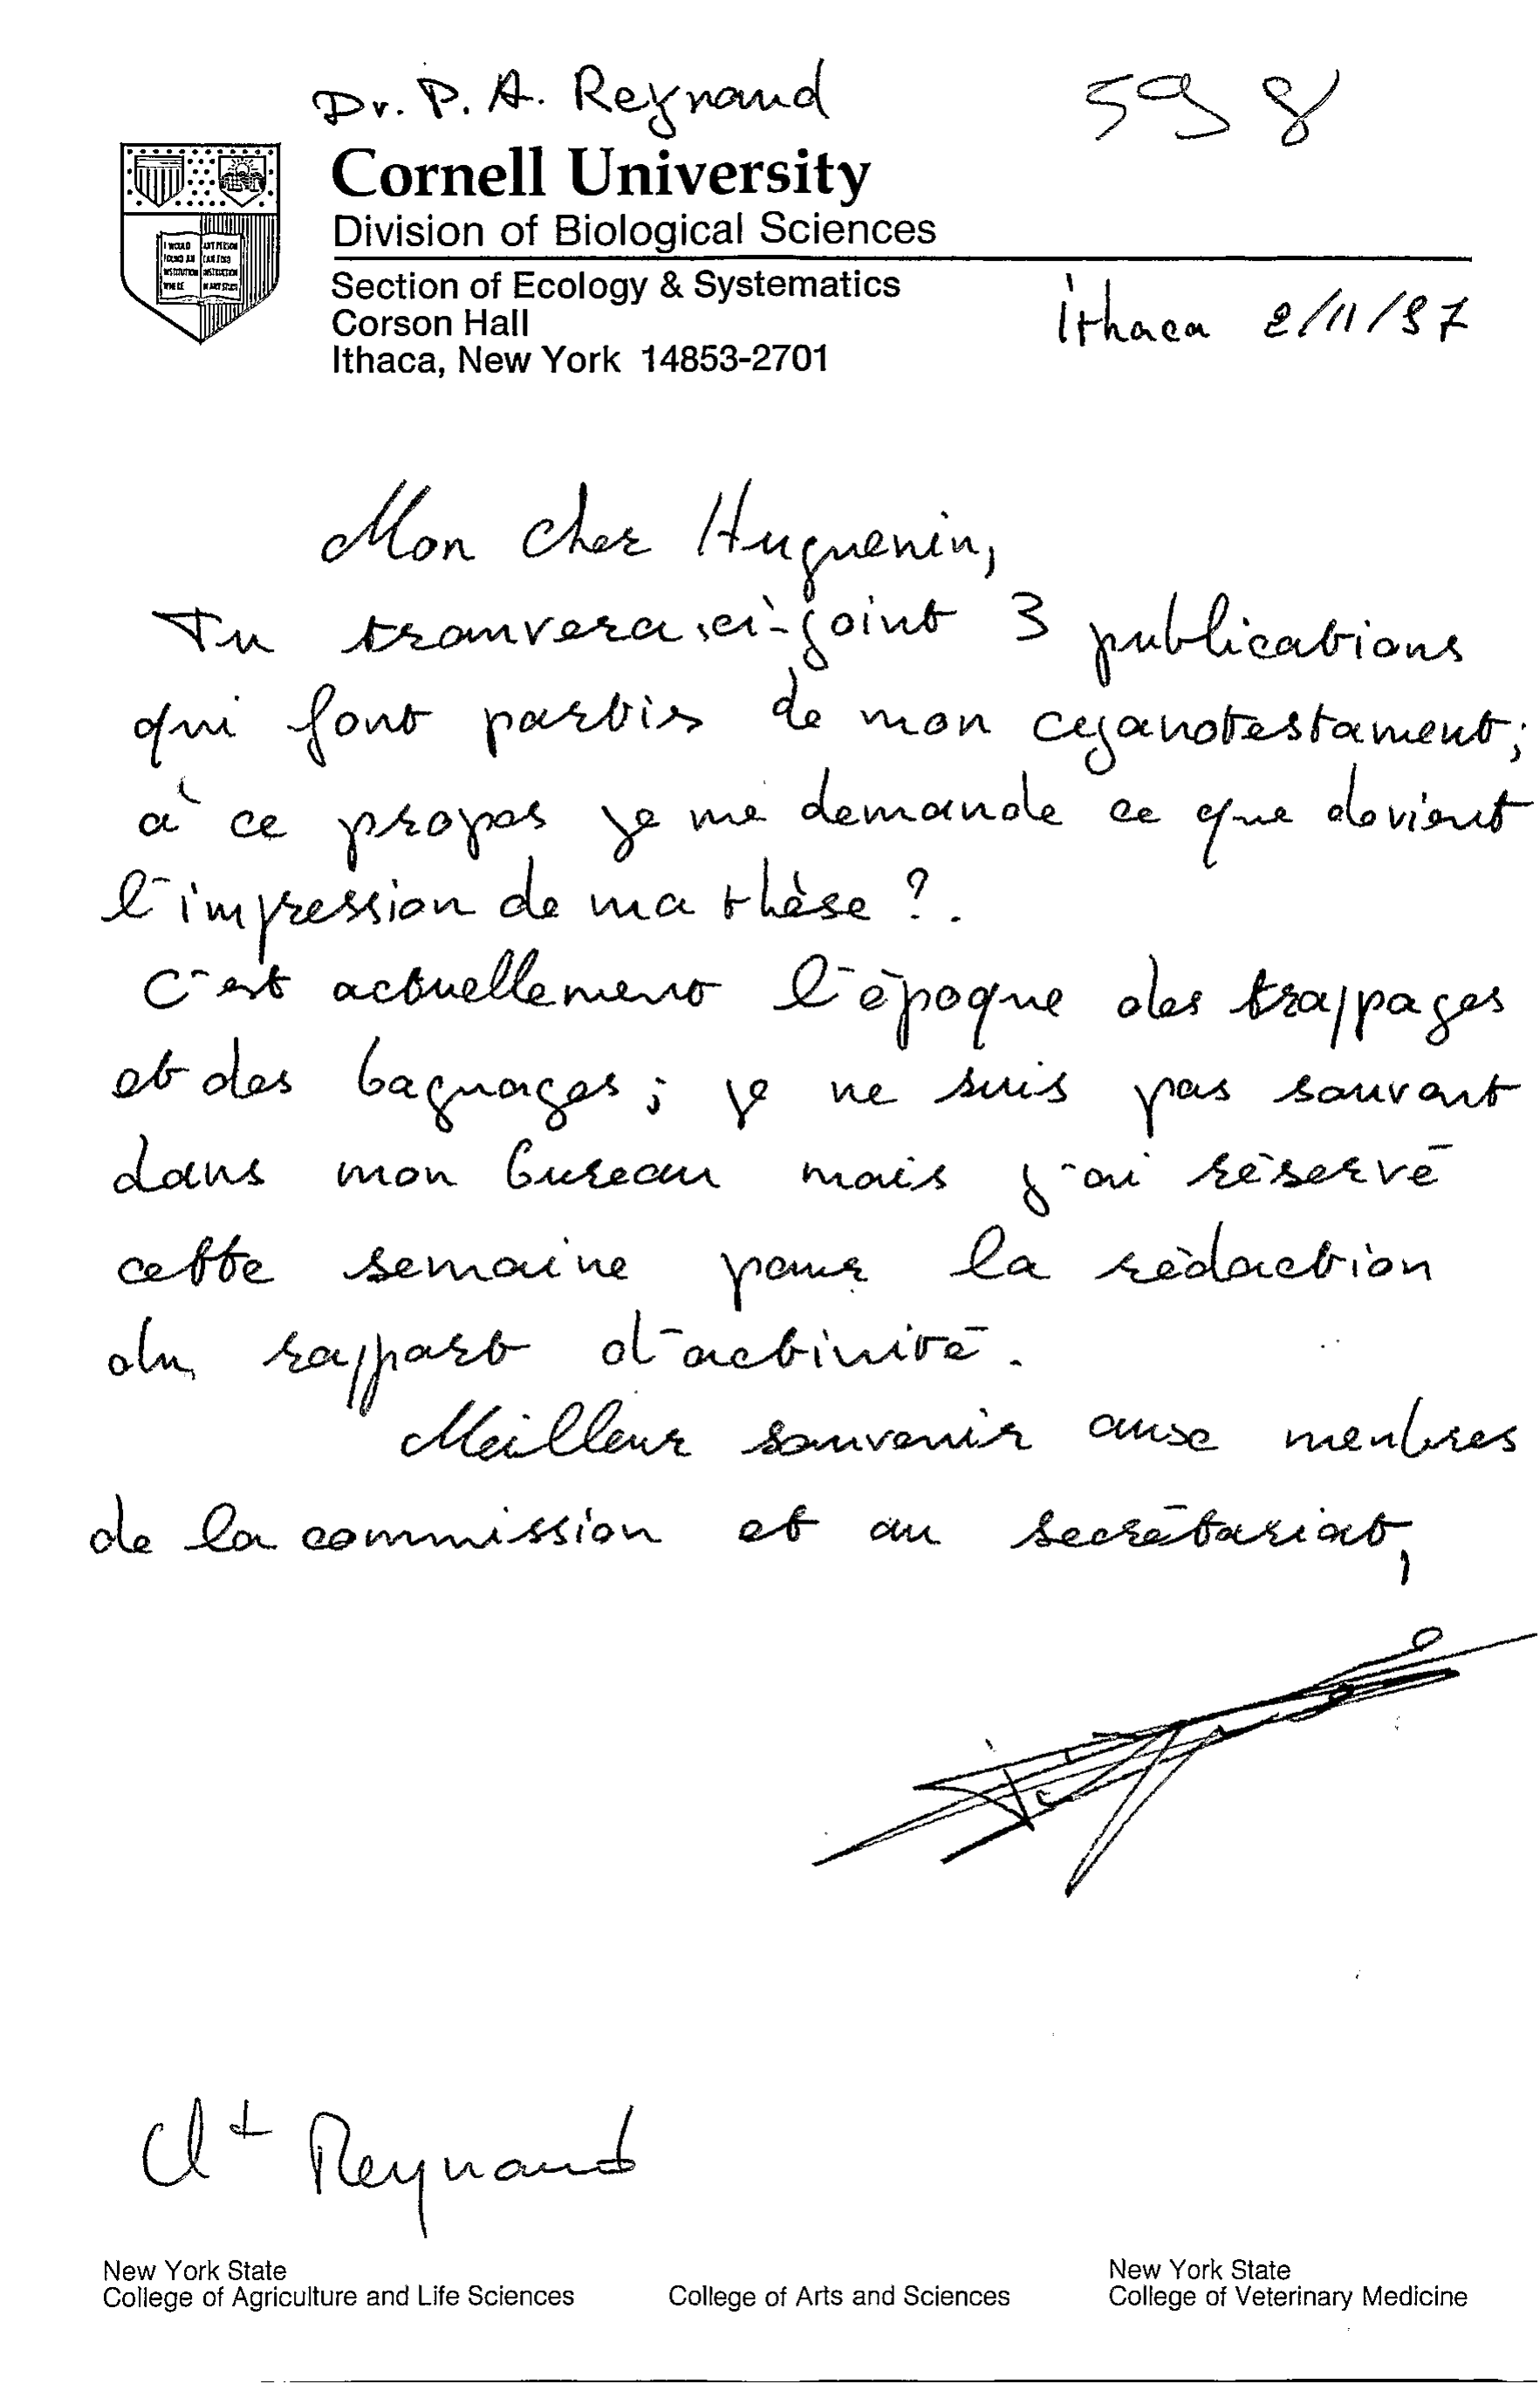 Dr. P. A. Reynaud
598
Cornell University
Division of Biological Sciences
Section of Ecology & Systematics
Corson Hall
Ithaca, New York 14853-2701
I WOULD FOUND AN INSTITUTION WHERE ANY PERSON CAN FIND INSTRUCTION IN ANY STUDY
Ithaca 2/11/97
Mon cher Huguenin,
Tu trouvera ci-joint 3 publications
qui font partis de mon cyanotestament;
à ce propos je me demande ce que devient
l'impression de ma thèse ?.
C'est actuellement l'époque des trappages
et des baguages ; je ne suis pas souvent
dans mon bureau mais j'ai réservé
cette semaine pour la rédaction
du rapport d'activité.
Meilleur souvenir aux menbres
de la commission et au secrétariat,
Reynaud
New York State
College of Agriculture and Life Sciences
College of Arts and Sciences
New York State
College of Veterinary Medicine